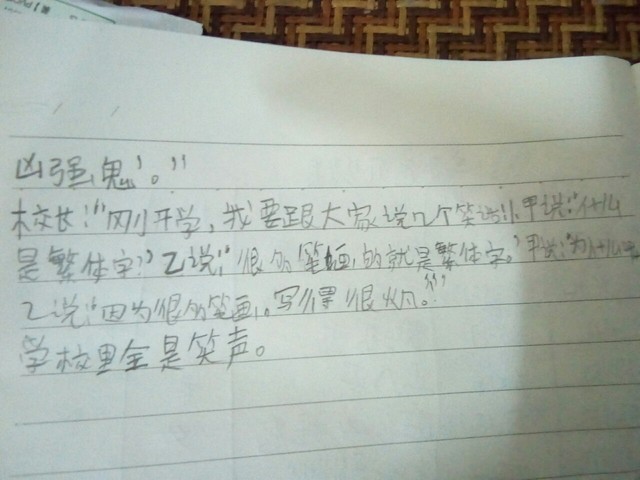 凶强鬼’。”
校长：“刚开学，我要跟大家说几个笑话！甲说：‘什么
是繁体字？’乙说：‘很多笔画的就是繁体字。’甲说：‘为什么
乙说：‘因为很多笔画，写得很火。’”
学校里全是笑声。